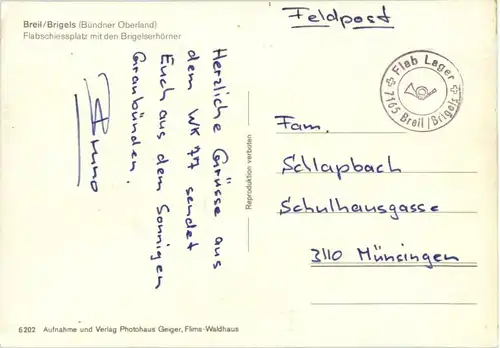 Breil/Brigels (Bündner Oberland)
Flabschiessplatz mit den Brigelserhörner
Herzliche Grüsse aus
dem WK 77 sendet
Euch aus dem Sonnigen
Graubünden.
Bruno
Reproduktion verboten
Feldpost
Flab Lager
7165 Breil/Brigels
Fam.
Schlapbach
Schulhausgasse
3110 Münsingen
6202 Aufnahme und Verlag Photohaus Geiger, Flims-Waldhaus